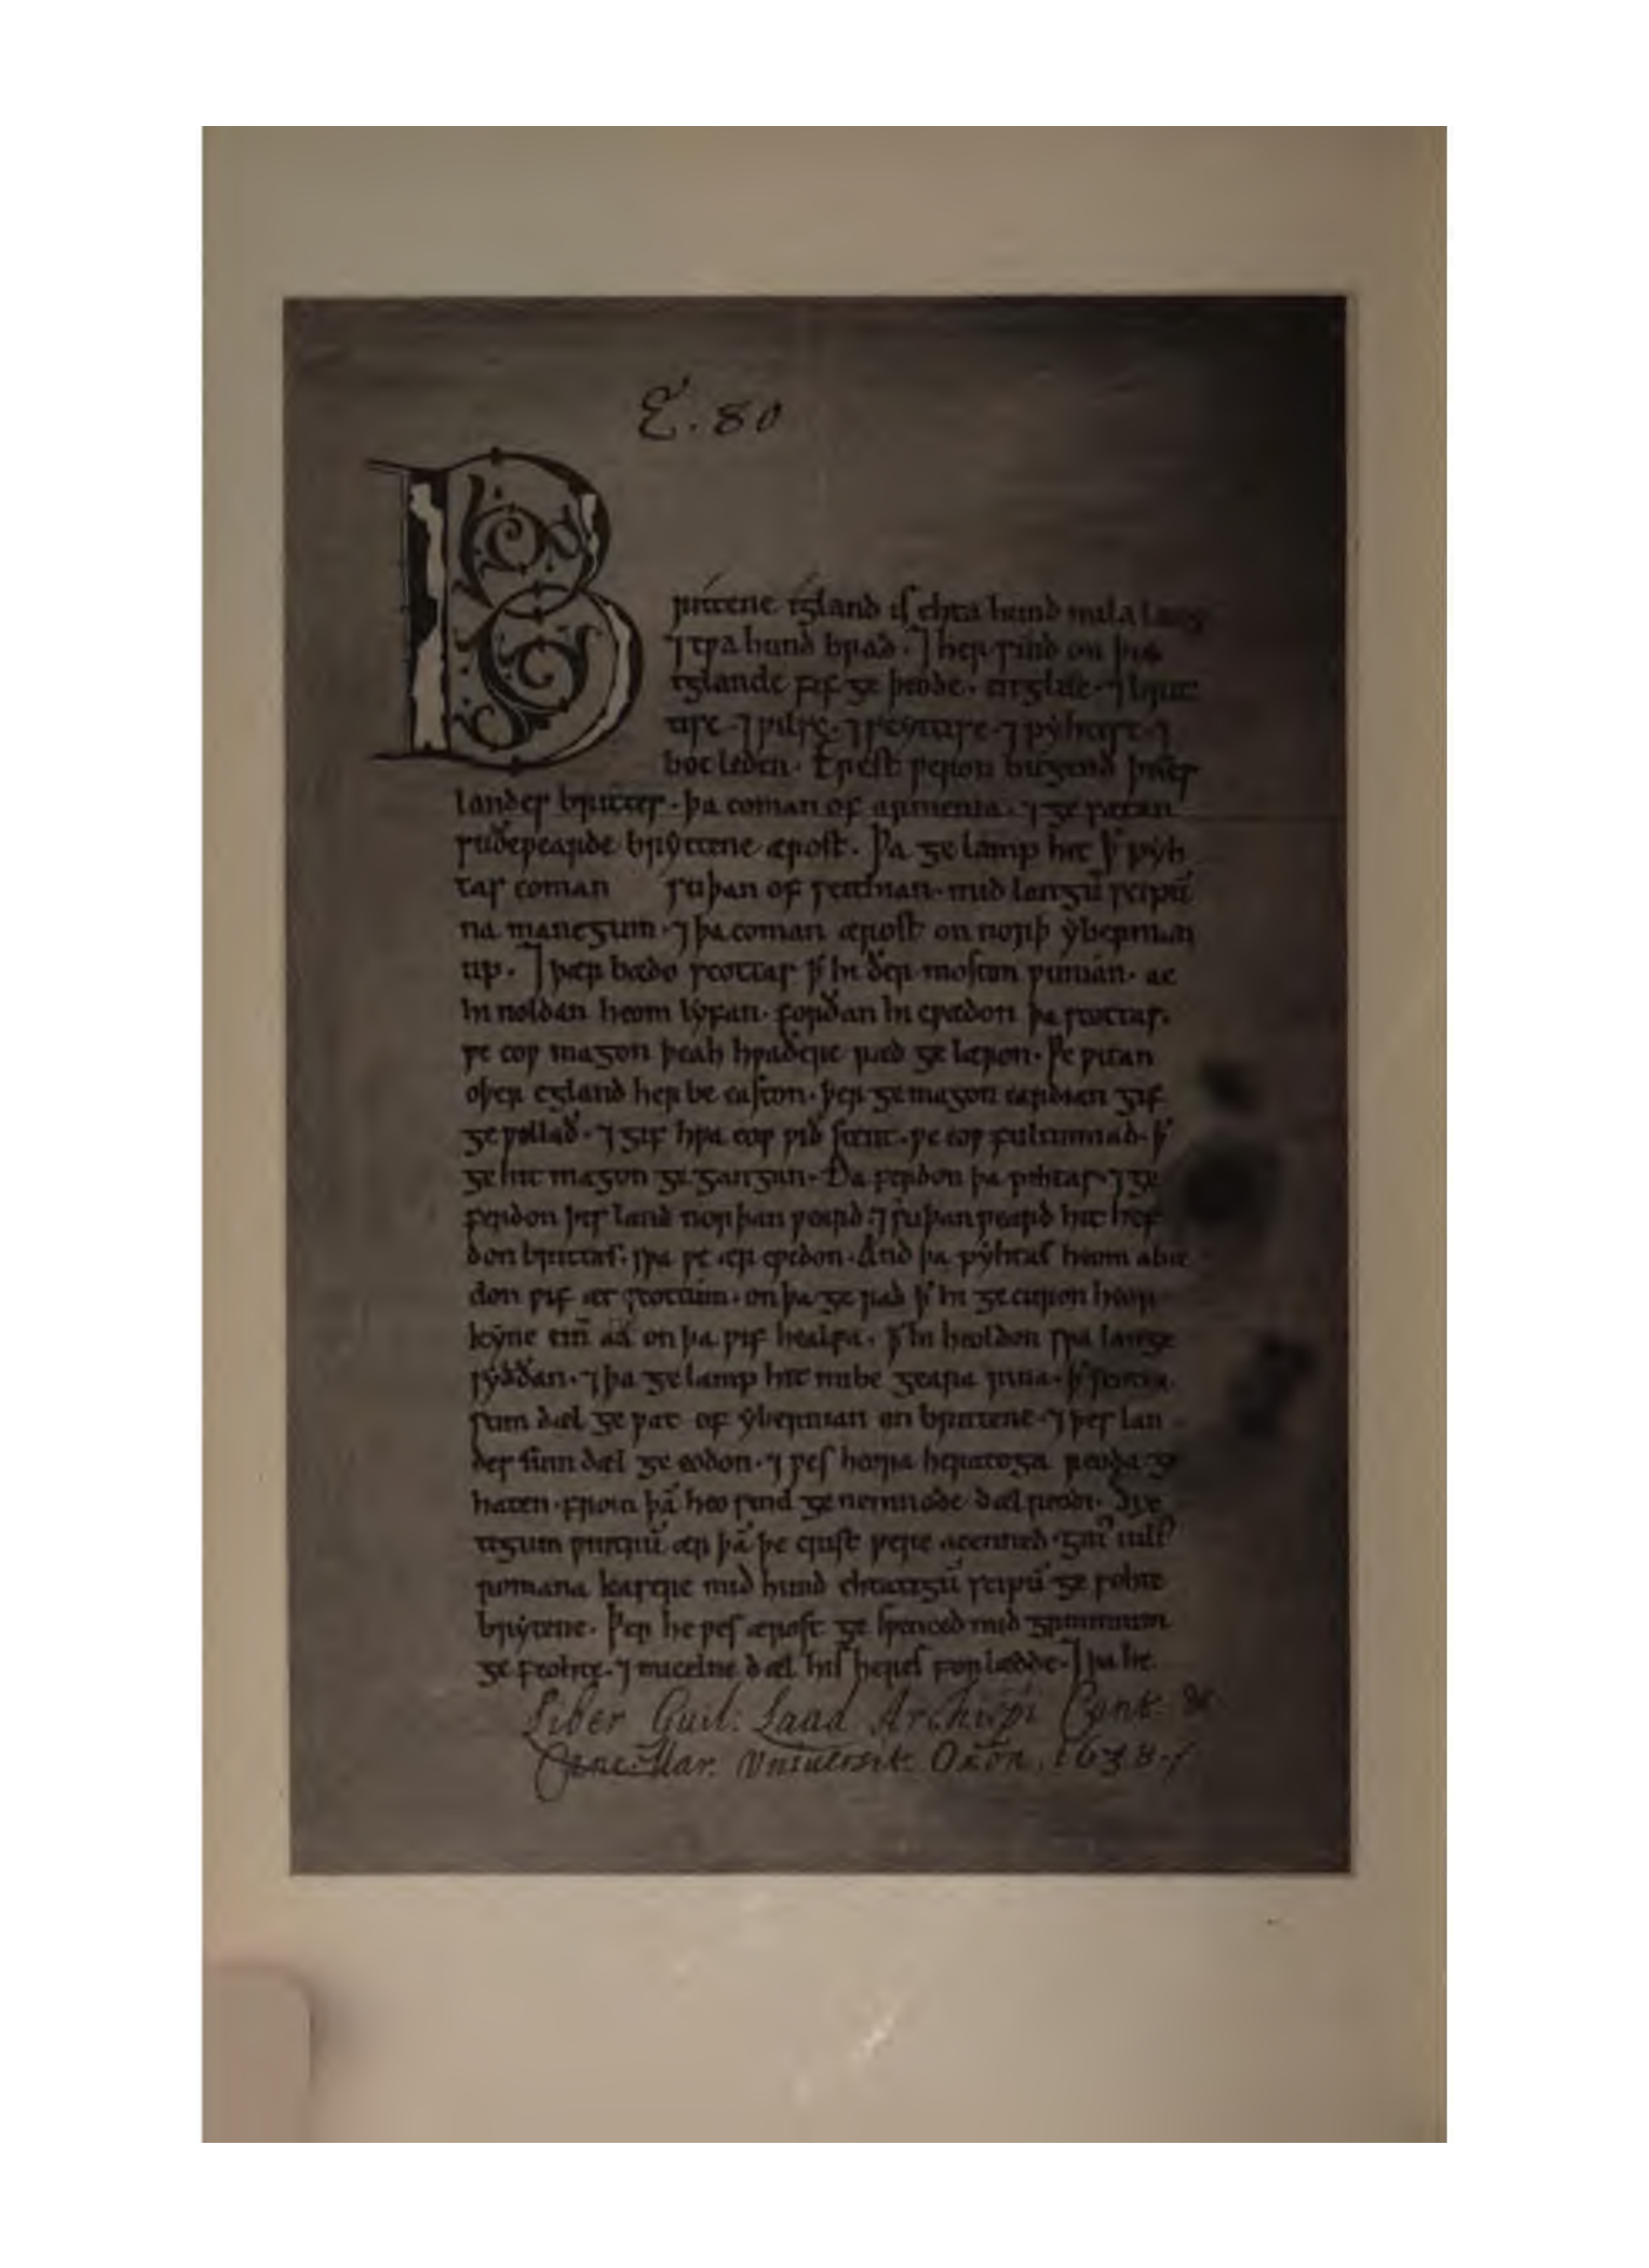 E. 80
Brittene igland is ehta hund mila lang
⁊ tƿa hund brad. ⁊ her sind on þis
iglande fif ge þeode. englisc. ⁊ brit
tisc. ⁊ ƿilsc. ⁊ scyttisc. ⁊ pyhtisc. ⁊
boc leden. Erest ƿeron bugend þises
landes brittes. þa coman of armenia. ⁊ ge sætan
suðeƿearde bryttene ærost. Þa ge lamp hit ꝥ pyh
tas coman suþan of scithian. mid langū scipū
na manegum. ⁊ þa coman ærost on norþ ybernian
up. ⁊ þær bædo scottas ꝥ hi ðer moston ƿunian. ac
hi noldan heom lyfan. forðan hi cƿædon þa scottas.
ƿe eoƿ magon þeah hƿaðere ræd ge læron. Ƿe ƿitan
oþer egland her be easton. þer ge magon eardian gif
ge ƿillað. ⁊ gif hƿa eoƿ ƿið stent. ƿe eoƿ fultumiað. ꝥ
ge hit magon ge gangan. Ða ferdon þa pihtas. ⁊ ge
ferdon þis land norþan ƿeard. ⁊ suþanƿeard hit hef
don brittas. sƿa ƿe ær cƿedon. And þa pyhtas heom abæ
don ƿif æt scottum. on þa ge rad ꝥ hi ge curon heor
kyne cin̄ aa on þa ƿif healfa. ꝥ hi heoldon sƿa lange
syððan. ⁊ þa ge lamp hit imbe geara rina. ꝥ scotta
sum dæl ge ƿat of ybernian on brittene. ⁊ þes lan
des sum dæl ge eodon. ⁊ ƿes heora heratoga reoda ge
haten. from þā heo sind ge nemnode dæl reodi. Six
tigum ƿintrū ær þā þe crist ƿere acenned. gai iulī
romana kasere mid hund ehtatigū scipū ge sohte
brytene. Þer he ƿes ærost ge sƿenced mid grimmum
ge feohte. ⁊ micelne dæl his heres forlædde. ⁊ þa he
Liber Guil: Laud Archiepī Cant. &
Cancellar. Vniuersit. Oxōn. 1638.